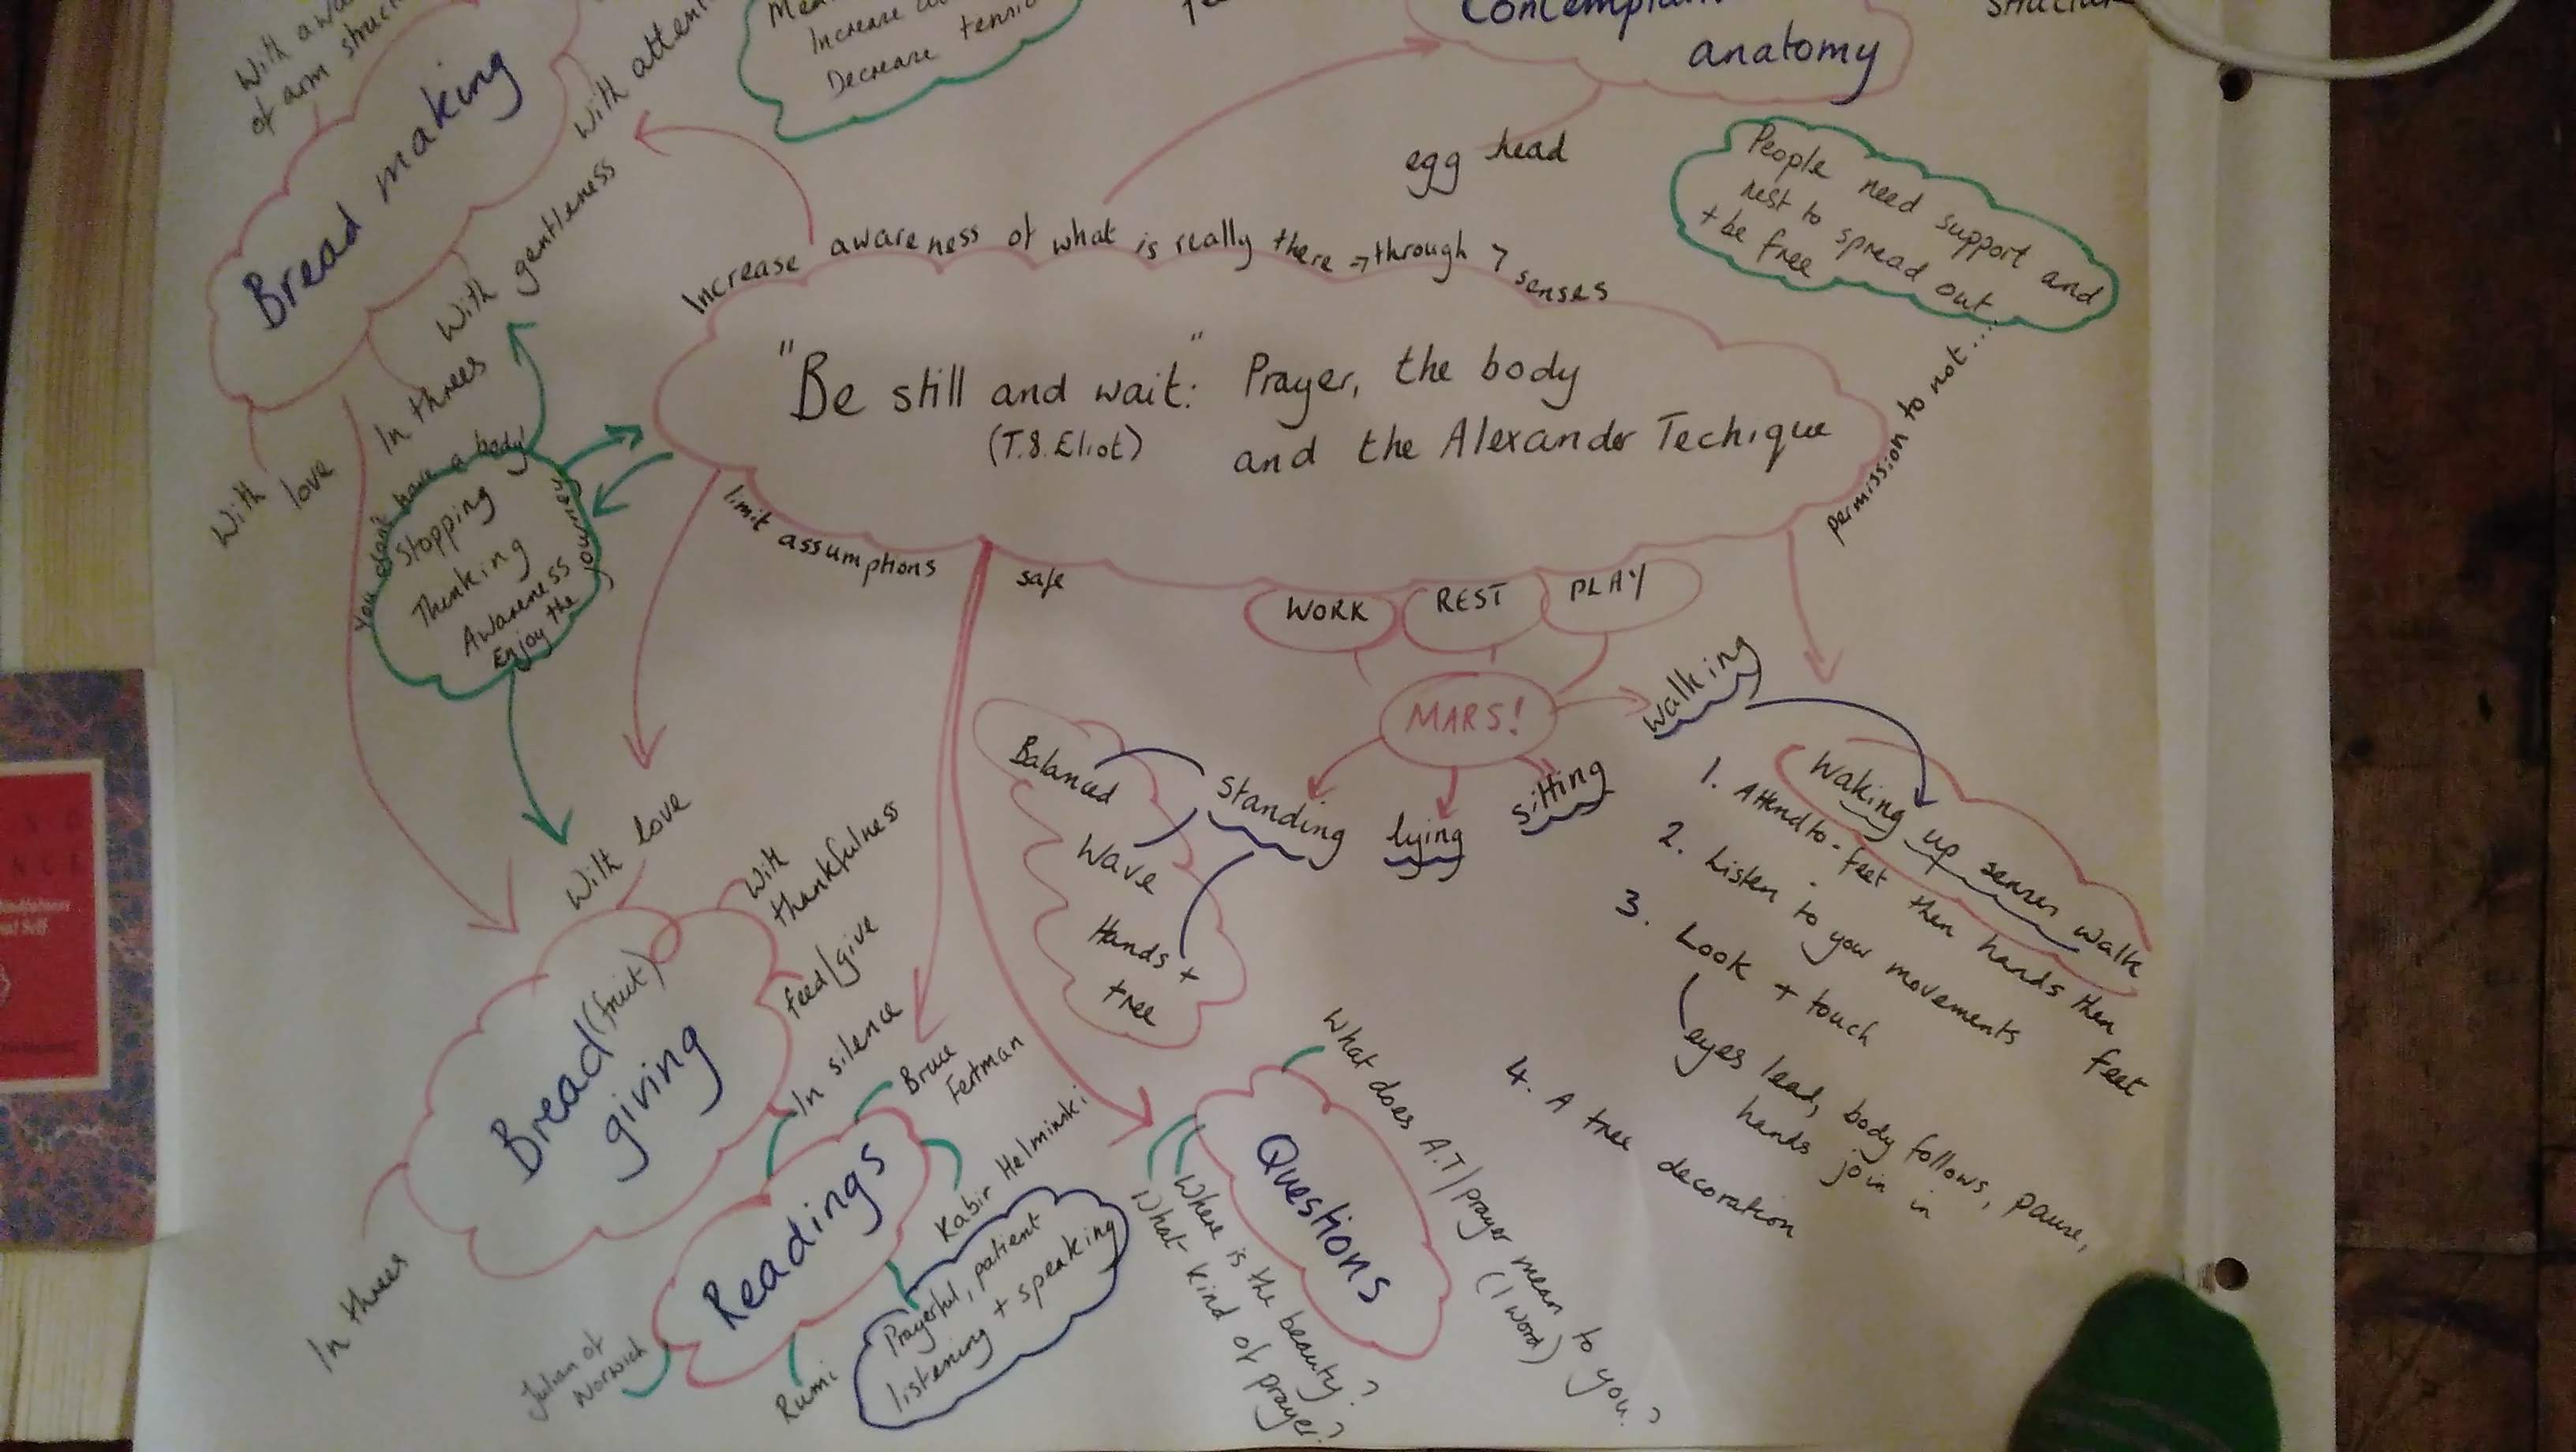 of arm
Bread making
With gentleness
In threes
With love
Increase
Decrease tension
anatomy
egg head
People need support and
rest to spread out...
+ be free
permission to not...
Increase awareness of what is really there → through > senses
"Be still and wait:" Prayer, the body
(T.S. Eliot) and the Alexander Techique
limit assumptions
safe
WORK
REST
PLAY
MARS!
walking
standing
lying
sitting
Balanced
Wave
Hands +
tree
You don't have a body!
Stopping
Thinking
Awareness
Enjoy the
Waking up senses walk
1. Attend to - feet then hands then feet
2. Listen to your movements
3. Look + touch
eyes lead, body follows, pause,
hands join in
4. A tree decoration
With love
With
thankfulness
feed/give
In silence
Bread (fruit)
giving
In threes
Readings
Bruce
Fertman
Kabir Helminski
Prayerful, patient
listening + speaking
Rumi
Julian of
Norwich
Questions
What does A.T/prayer mean to you?
(1 word)
Where is the beauty?
What kind of prayer?